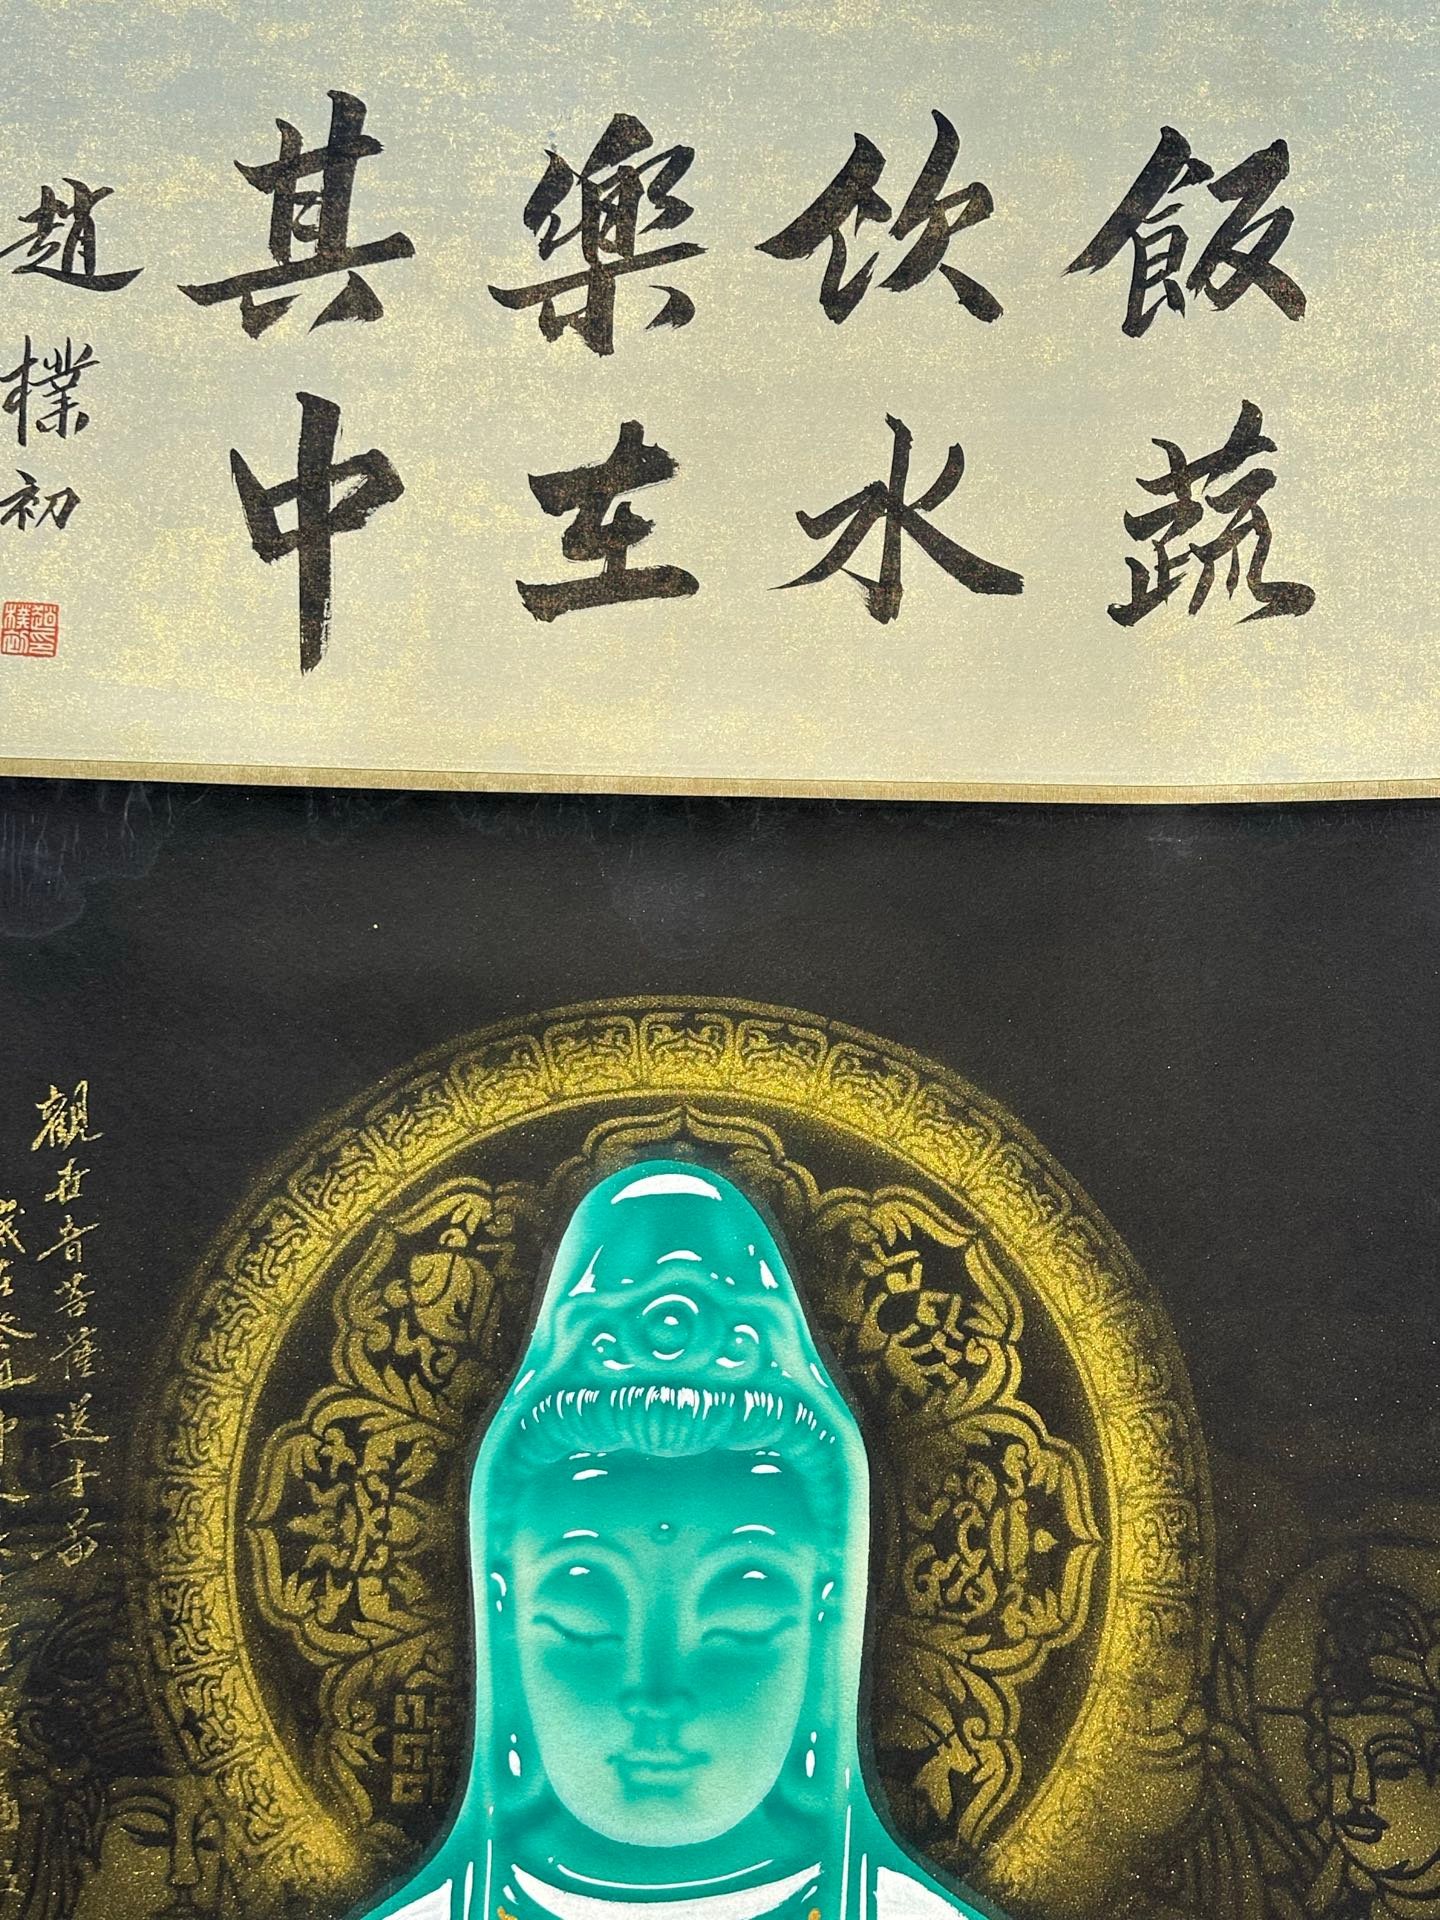 飯蔬
飲水
樂在
其中
趙樸初
趙樸初印
觀世音菩薩送子圖